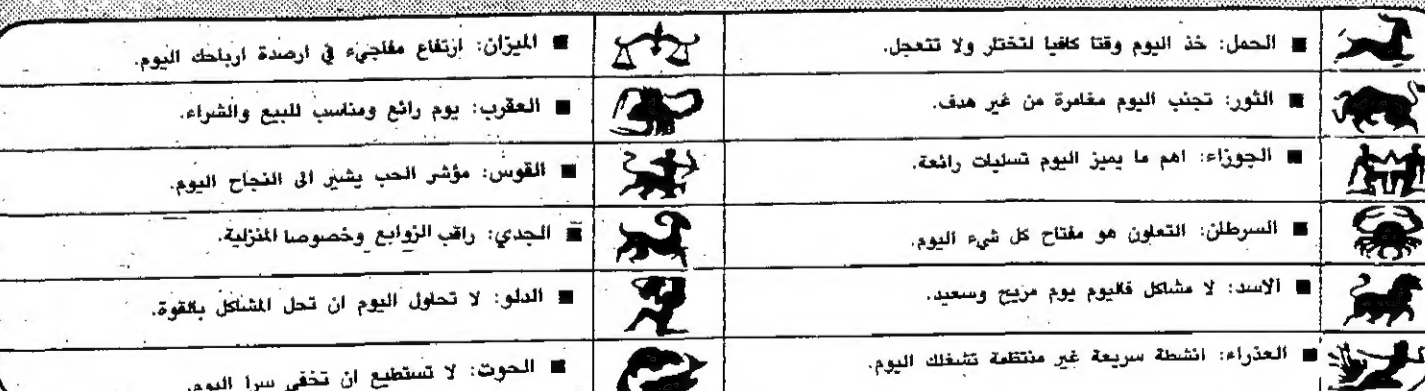 ■ الحمل: خذ اليوم وقتا كافيا لتختار ولا تتعجل.
■ الثور: تجنب اليوم مغامرة من غير هدف.
■ الجوزاء: اهم ما يميز اليوم تسليات رائعة.
■ السرطان: التعاون هو مفتاح كل شيء اليوم.
■ الاسد: لا مشاكل فاليوم يوم مريح وسعيد.
■ العذراء: انشطة سريعة غير منتظمة تشغلك اليوم.
■ الميزان: ارتفاع مفاجىء في ارصدة ارباحك اليوم.
■ العقرب: يوم رائع ومناسب للبيع والشراء.
■ القوس: مؤشر الحب يشير الى النجاح اليوم.
■ الجدي: راقب الزوابع وخصوصا المنزلية.
■ الدلو: لا تحاول اليوم ان تحل المشاكل بالقوة.
■ الحوت: لا تستطيع ان تخفي سرا اليوم.